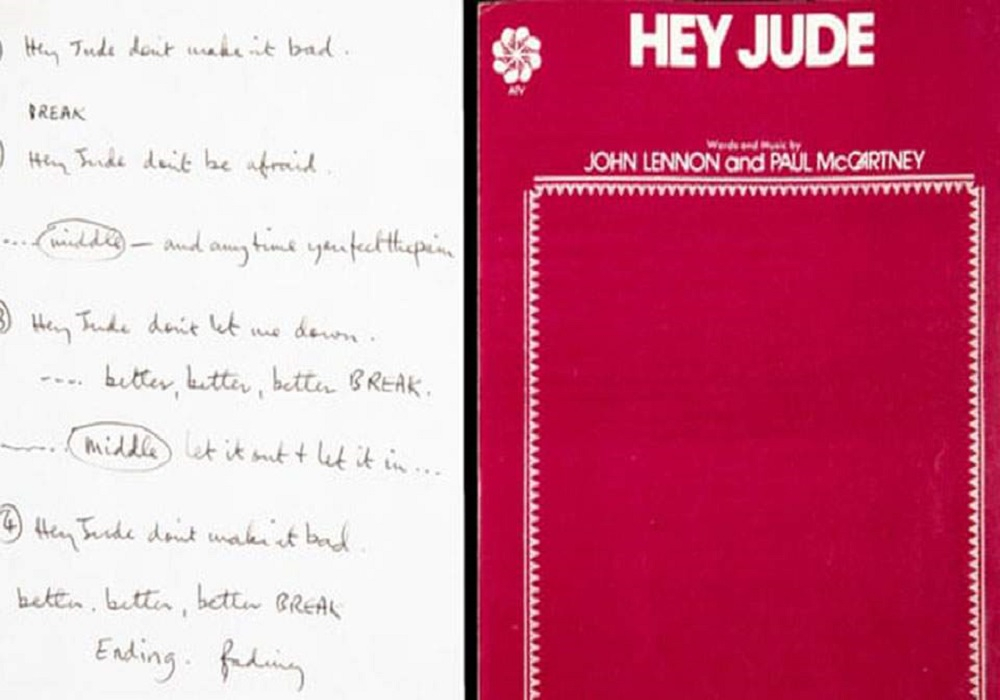 ) Hey Jude don't make it bad.
BREAK
) Hey Jude don't be afraid.
....middle — and anytime you feel the pain
3) Hey Jude don't let me down.
---- better, better, better BREAK.
middle let it out + let it in ...
4 Hey Jude don't make it bad.
better. better, better BREAK
Ending. fading
ATV
HEY JUDE
Words and Music by
JOHN LENNON and PAUL McCARTNEY